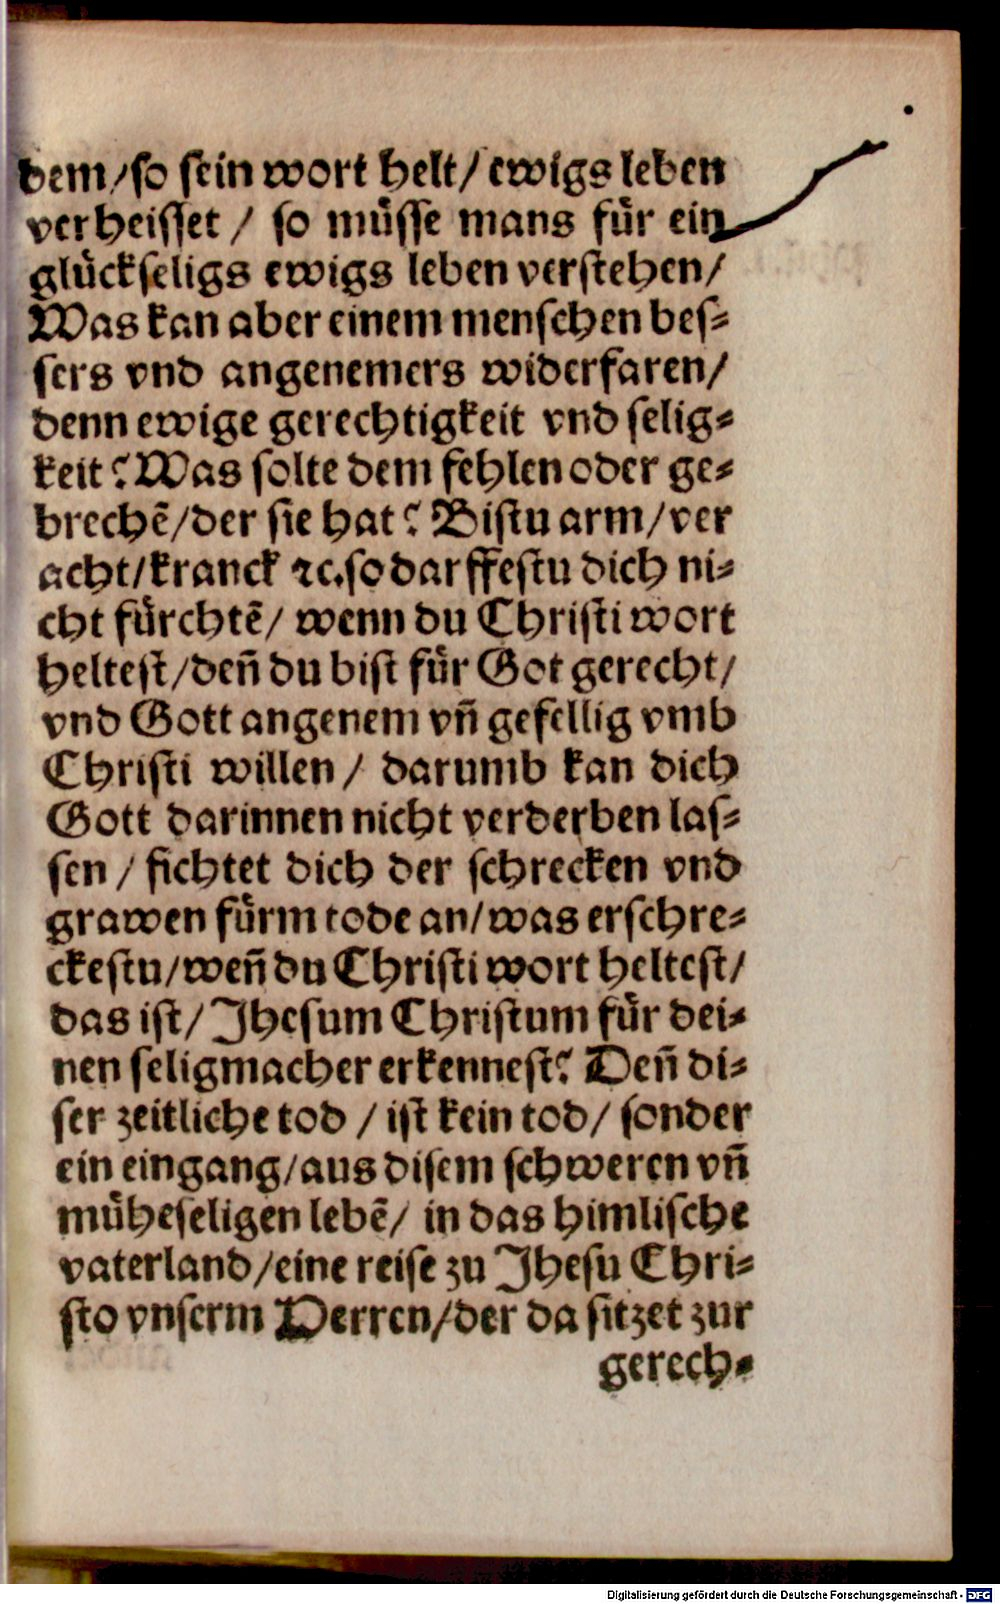 dem/so sein wort helt/ ewigs leben
verheisset / so müsse mans für ein
glückseligs ewigs leben verstehen/
Was kan aber einem menschen bes⸗
sers vnd angenemers widerfaren/
denn ewige gerechtigkeit vnd selig⸗
keit? Was solte dem fehlen oder ge⸗
brechē/der sie hat? Bistu arm/ver
acht/kranck ⁊c.so darffestu dich ni⸗
cht fürchtē/ wenn du Christi wort
heltest/deñ du bist für Got gerecht/
vnd Gott angenem vñ gefellig vmb
Christi willen/ darumb kan dich
Gott darinnen nicht verderben las⸗
sen / fichtet dich der schrecken vnd
grawen fürm tode an/was erschre⸗
ckestu/weñ du Christi wort heltest/
das ist/ Jhesum Christum für dei⸗
nen seligmacher erkennest? Deñ di⸗
ser zeitliche tod / ist kein tod/ sonder
ein eingang/aus disem schweren vñ
müheseligen lebē/ in das himlische
vaterland/eine reise zu Jhesu Chri⸗
sto vnserm Herren/der da sitzet zur
gerech⸗
Digitalisierung gefördert durch die Deutsche Forschungsgemeinschaft - DFG